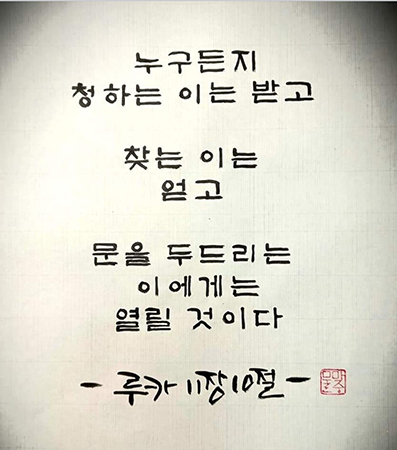 누구든지
청하는 이는 받고
찾는 이는
얻고
문을 두드리는
이에게는
열릴 것이다
- 루카 11장 10절 -